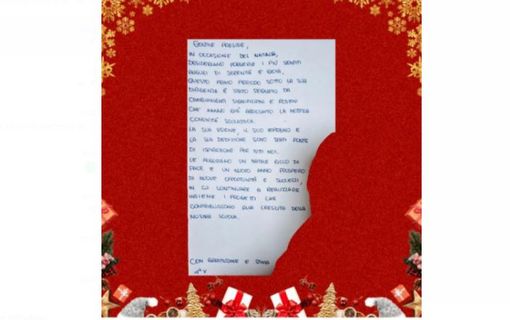 GENTILE PRESIDE,
IN OCCASIONE DEL NATALE,
DESIDERIAMO PORGERLE I PIÙ SENTITI
AUGURI DI SERENITÀ E GIOIA,
QUESTO PRIMO PERIODO SOTTO LA SUA
DIRIGENZA È STATO SEGNATO DA
CAMBIAMENTI SIGNIFICATIVI E POSITIVI
CHE HANNO GIÀ ARRICCHITO LA NOSTRA
COMUNITÀ SCOLASTICA.
LA SUA VISIONE, IL SUO IMPEGNO E
LA SUA DEDIZIONE SONO STATI FONTE
DI ISPIRAZIONE PER TUTTI NOI.
LE AUGURIAMO UN NATALE RICCO DI
PACE E UN NUOVO ANNO PROSPERO
DI NUOVE OPPORTUNITÀ E SUCCESSI,
IN CUI CONTINUARE A REALIZZARE
INSIEME I PROGETTI CHE
CONTRIBUISCONO ALLA CRESCITA DELLA
NOSTRA SCUOLA.
CON GRATITUDINE E STIMA